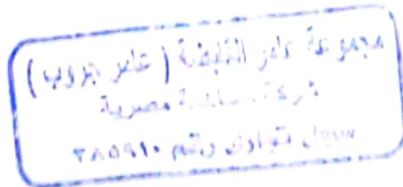 مجموعة عامر القابضة (عامر جروب)
شركة مساهمة مصرية
سجل تجاري رقم